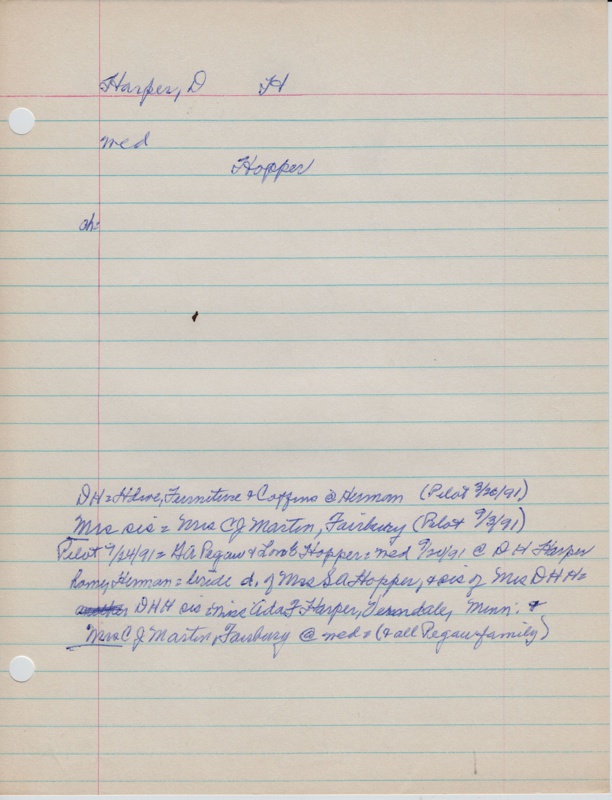 Harper, D H
med
Hopper
ch=
DH = Hdwe, Furniture & Coffins @ Herman (Pilot 3/20/91)
Mrs sis = Mrs CJ Martin, Fairbury (Pilot 9/3/91)
Pilot 9/24/91 = GA Pegau & Hopper = med 9/20/91 @ D H Harper
home, Herman = bride d. of Mrs SA Hopper, & sis of Mrs DHH =
another DHH sis = Miss Ada F Harper, Verndale, Minn. &
Mrs CJ Martin, Fairbury @ med = (& all Pegau family)